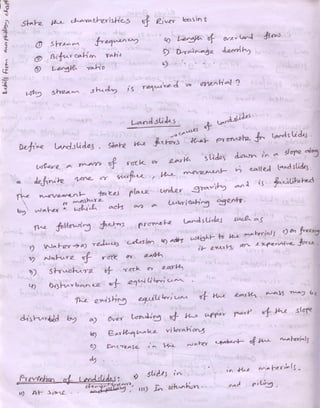 State the characteristics of River basins
① Stream frequency 4) Length of overland flow
② Bifurcation ratio 5) Drainage density
③ Length ratio 6)
Why stream study is required or essential?
Landslides
causes of landslides
Define landslides. State the factors that promote for landslides
Where a mass of rock or earth slides down in a slope along
a definite zone or surface, the movement is called landslides,
The movement takes place under gravity and is facilitated
or moisture
by water which acts as a lubricating agents.
The following factors promote landslides such as
1) Water → a) reduces cohesion b) adds weight to the material c) on freezing
it exerts an expansive force
2) Nature of rock or earth
3) Structure of rock or earth
4) Disturbance of equilibrium
The existing equilibrium of the earth mass may be
disturbed by a) Over loading of the upper part of the slope
b) Earthquake vibrations
c) Increase in the water content of the materials
d)
Prevention of Landslides: i) slides in in the materials.
ii) At some iii) In situation and piling